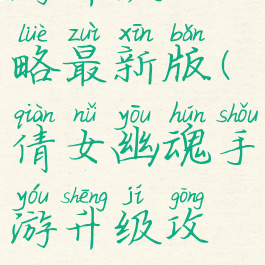 lüè zuì xīn bǎn
略最新版(
qiàn nǚ yōu hún shǒu
倩女幽魂手
yóu shēng jí gōng
游升级攻